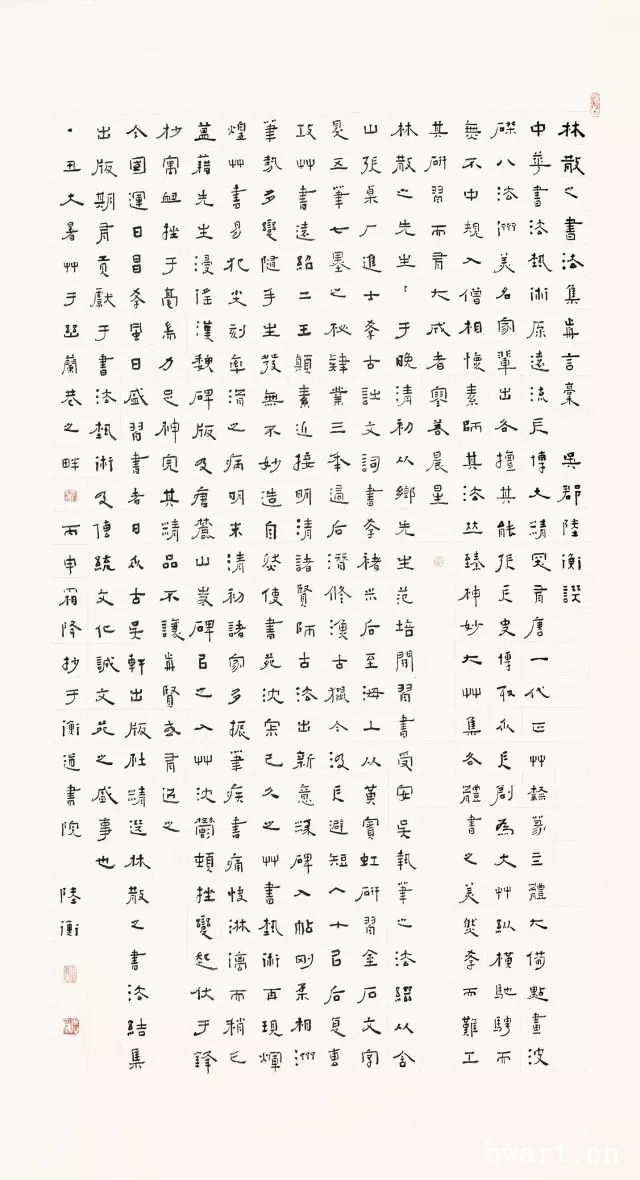 林散之書法集弁言稾 吳郡陸衡譔
中華書法藝術原遠流長博大精罙有唐一代正艸隸篆立體大備點畫波
磔八法洲美名家輩出各擅其能張長史博取眾長創為大艸縱橫馳騁而
無不中規入僧相懷素師其法並臻神妙大艸集各體書之美然學而難工
其研習而有大成者寥若晨星
林散之先生生于晚清初从鄉先生范培開習書受安吳執筆之法繼从含
山張栗厂進士學古詩文詞書學褚米后至海上从黃賓虹研習金石文字
及五筆七墨之秘肄業三年過后潛修漁古獵今汲長避短八十以后复專
攻艸書遠紹二王顛素近接明清諸賢師古法出新意漢碑入帖剛柔相洲
筆勢多變隨手生發無不妙造自然使書苑沈寂已久之艸書藝術再現輝
煌艸書易犯尖刻率滑之病明末清初諸家多振筆疾書痛快淋漓而稍乏
蘊藉先生浸淫漢魏碑版及唐麓山嵩碑以之入艸沈鬱頓挫變起伏于鋒
杪寓挫于毫力足神完其精品不讓前賢或有過之
今國運日昌學風日盛習書者日眾古吳軒出版社精選林散之書法結集
出版期有貢獻于書法藝術及傳統文化誠文苑之盛事也
丑大暑艸于幽蘭巷之畔 丙申霜降抄于衡道書院 陸衡
hwart.cn